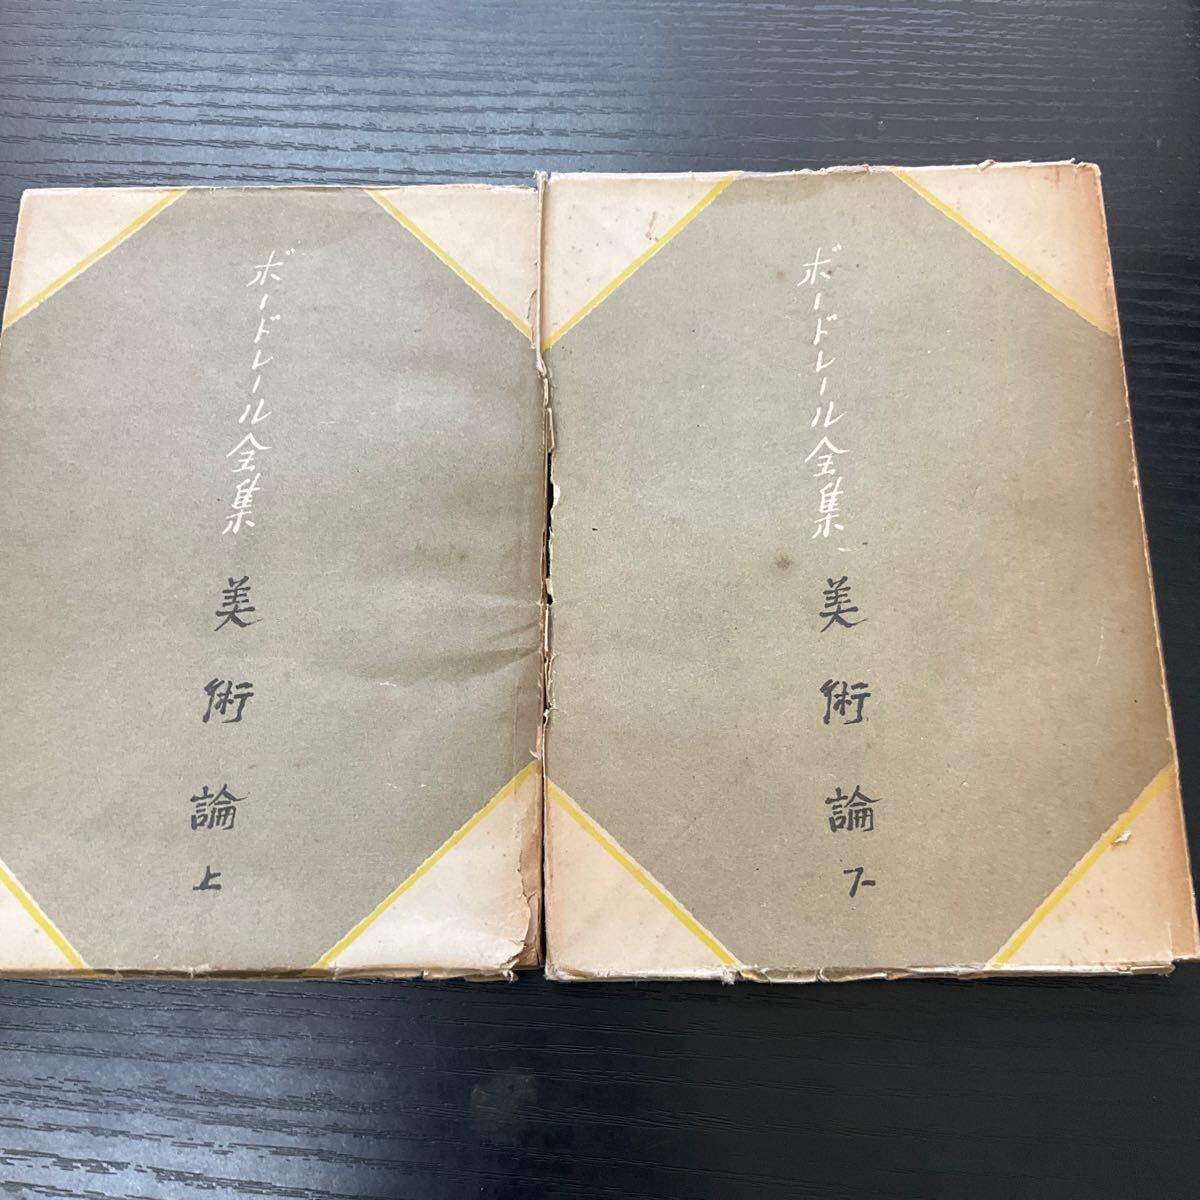 ボードレール全集
美術論
上
ボードレール全集
美術論
下